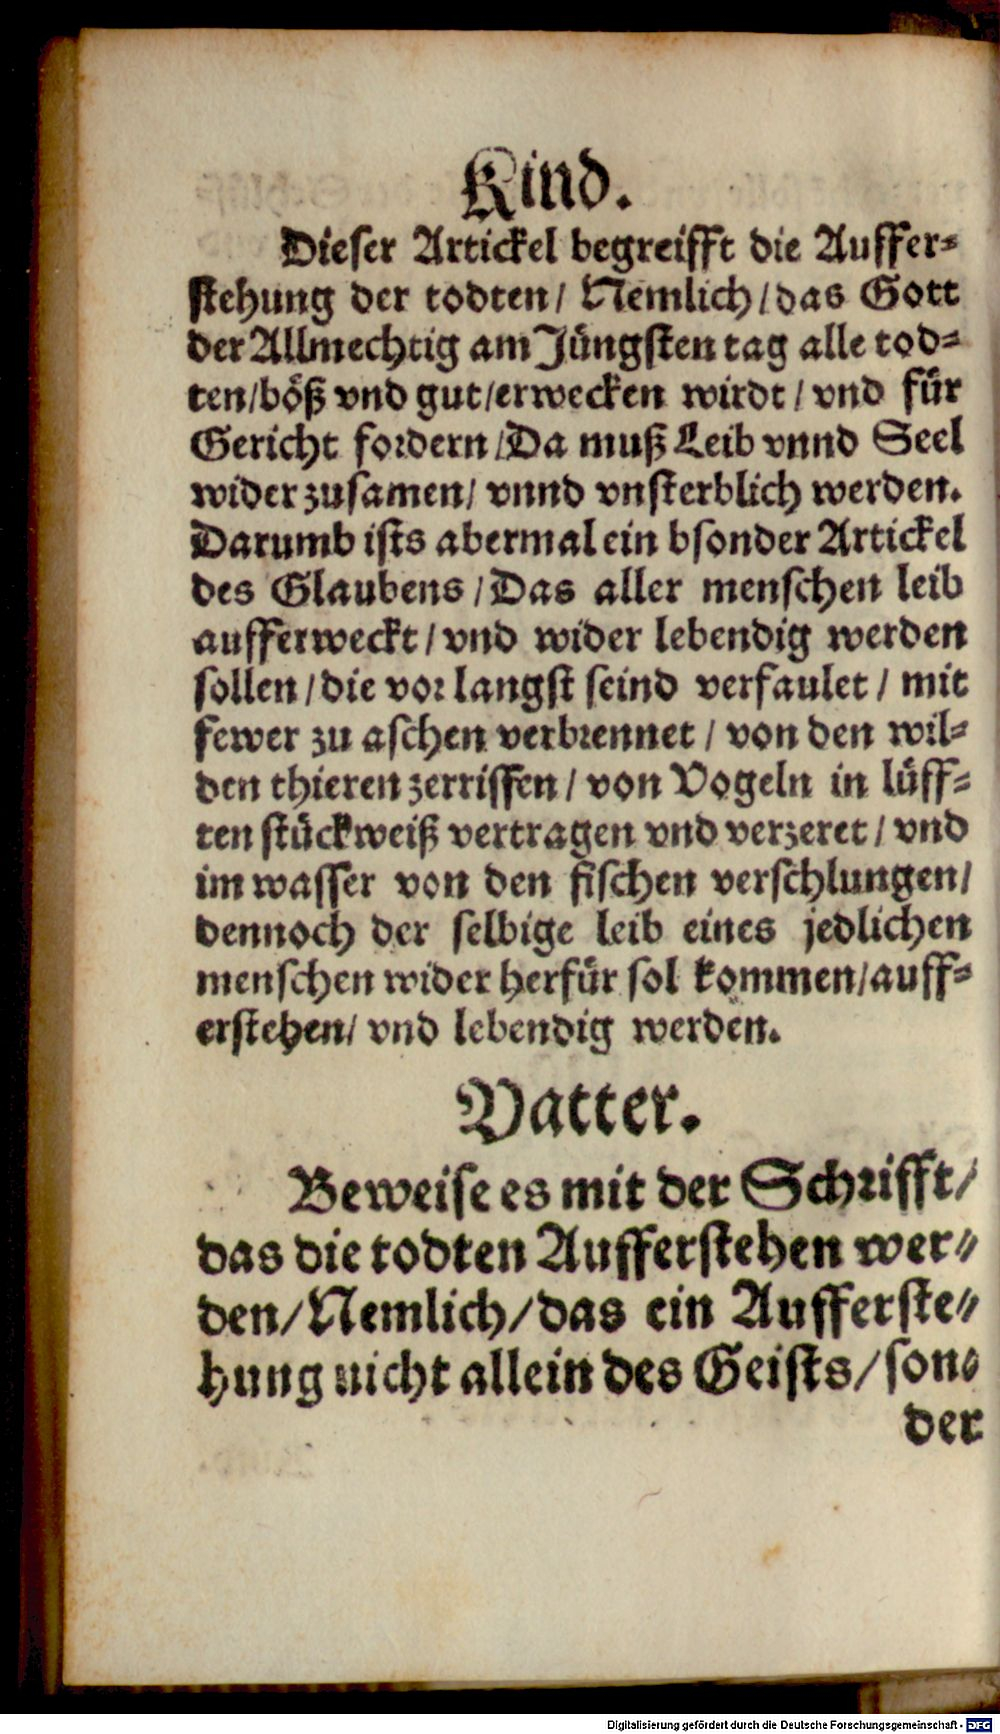 Kind.
Dieser Artickel begreifft die Auffer-
stehung der todten/ Nemlich/das Gott
der Allmechtig am Jüngsten tag alle tod-
ten/böß vnd gut/erwecken wirdt/vnd für
Gericht fordern/Da muß Leib vnnd Seel
wider zusamen/ vnnd vnsterblich werden.
Darumb ists abermal ein bsonder Artickel
des Glaubens/Das aller menschen leib
aufferweckt/vnd wider lebendig werden
sollen/die vor langst seind verfaulet/mit
fewer zu aschen verbrennet/von den wil-
den thieren zerrissen/von Vogeln in lüff-
ten stückweiß vertragen vnd verzeret/vnd
im wasser von den fischen verschlungen/
dennoch der selbige leib eines jedlichen
menschen wider herfür sol kommen/auff-
erstehen/ vnd lebendig werden.
Vatter.
Beweise es mit der Schrifft/
das die todten Aufferstehen wer-
den/Nemlich/das ein Aufferste-
hung nicht allein des Geists/son-
der
Digitalisierung gefördert durch die Deutsche Forschungsgemeinschaft - DFG